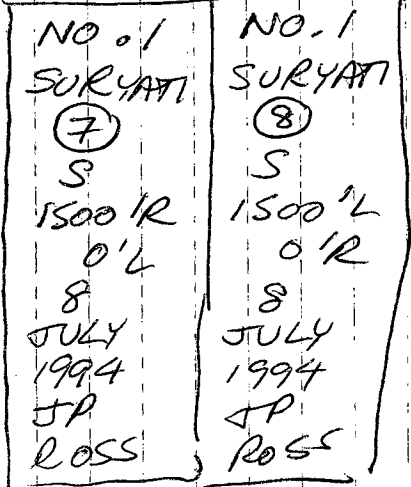 NO. 1
SURYATI
7
S
1500'R
0'L
8
JULY
1994
JP
ROSS
NO. 1
SURYATI
8
S
1500'L
0'R
8
JULY
1994
JP
ROSS